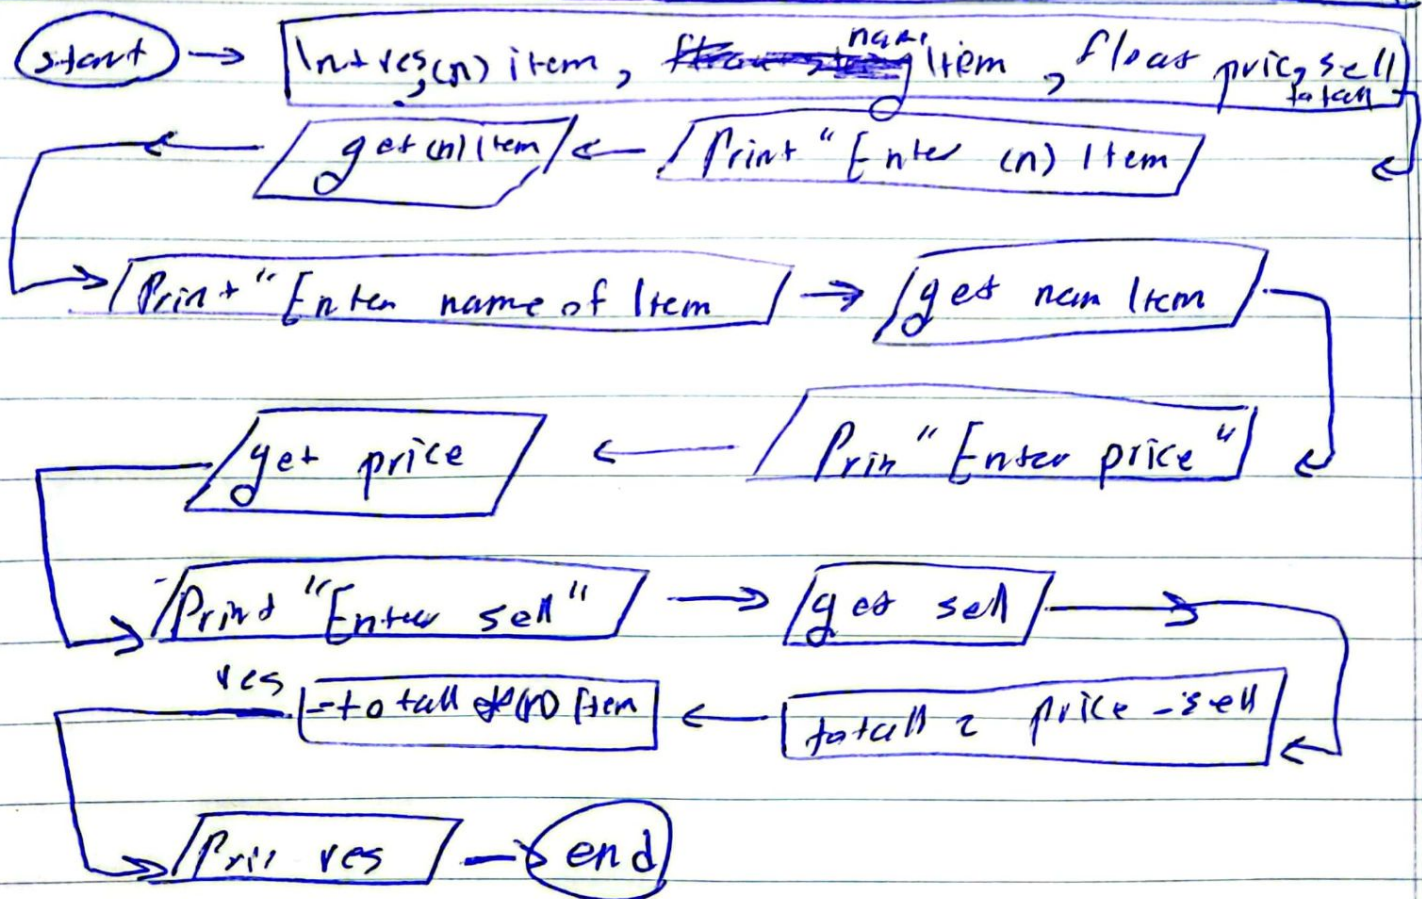 start → Int res, (n) item, name Item, float price, sell
totall
Print "Enter (n) Item
get (n) Item
Print "Enter name of Item
get nam Item
Prin "Enter price"
get price
Print "Enter sell"
get sell
totall = price - sell
res = totall (n) Item
Prin res
end